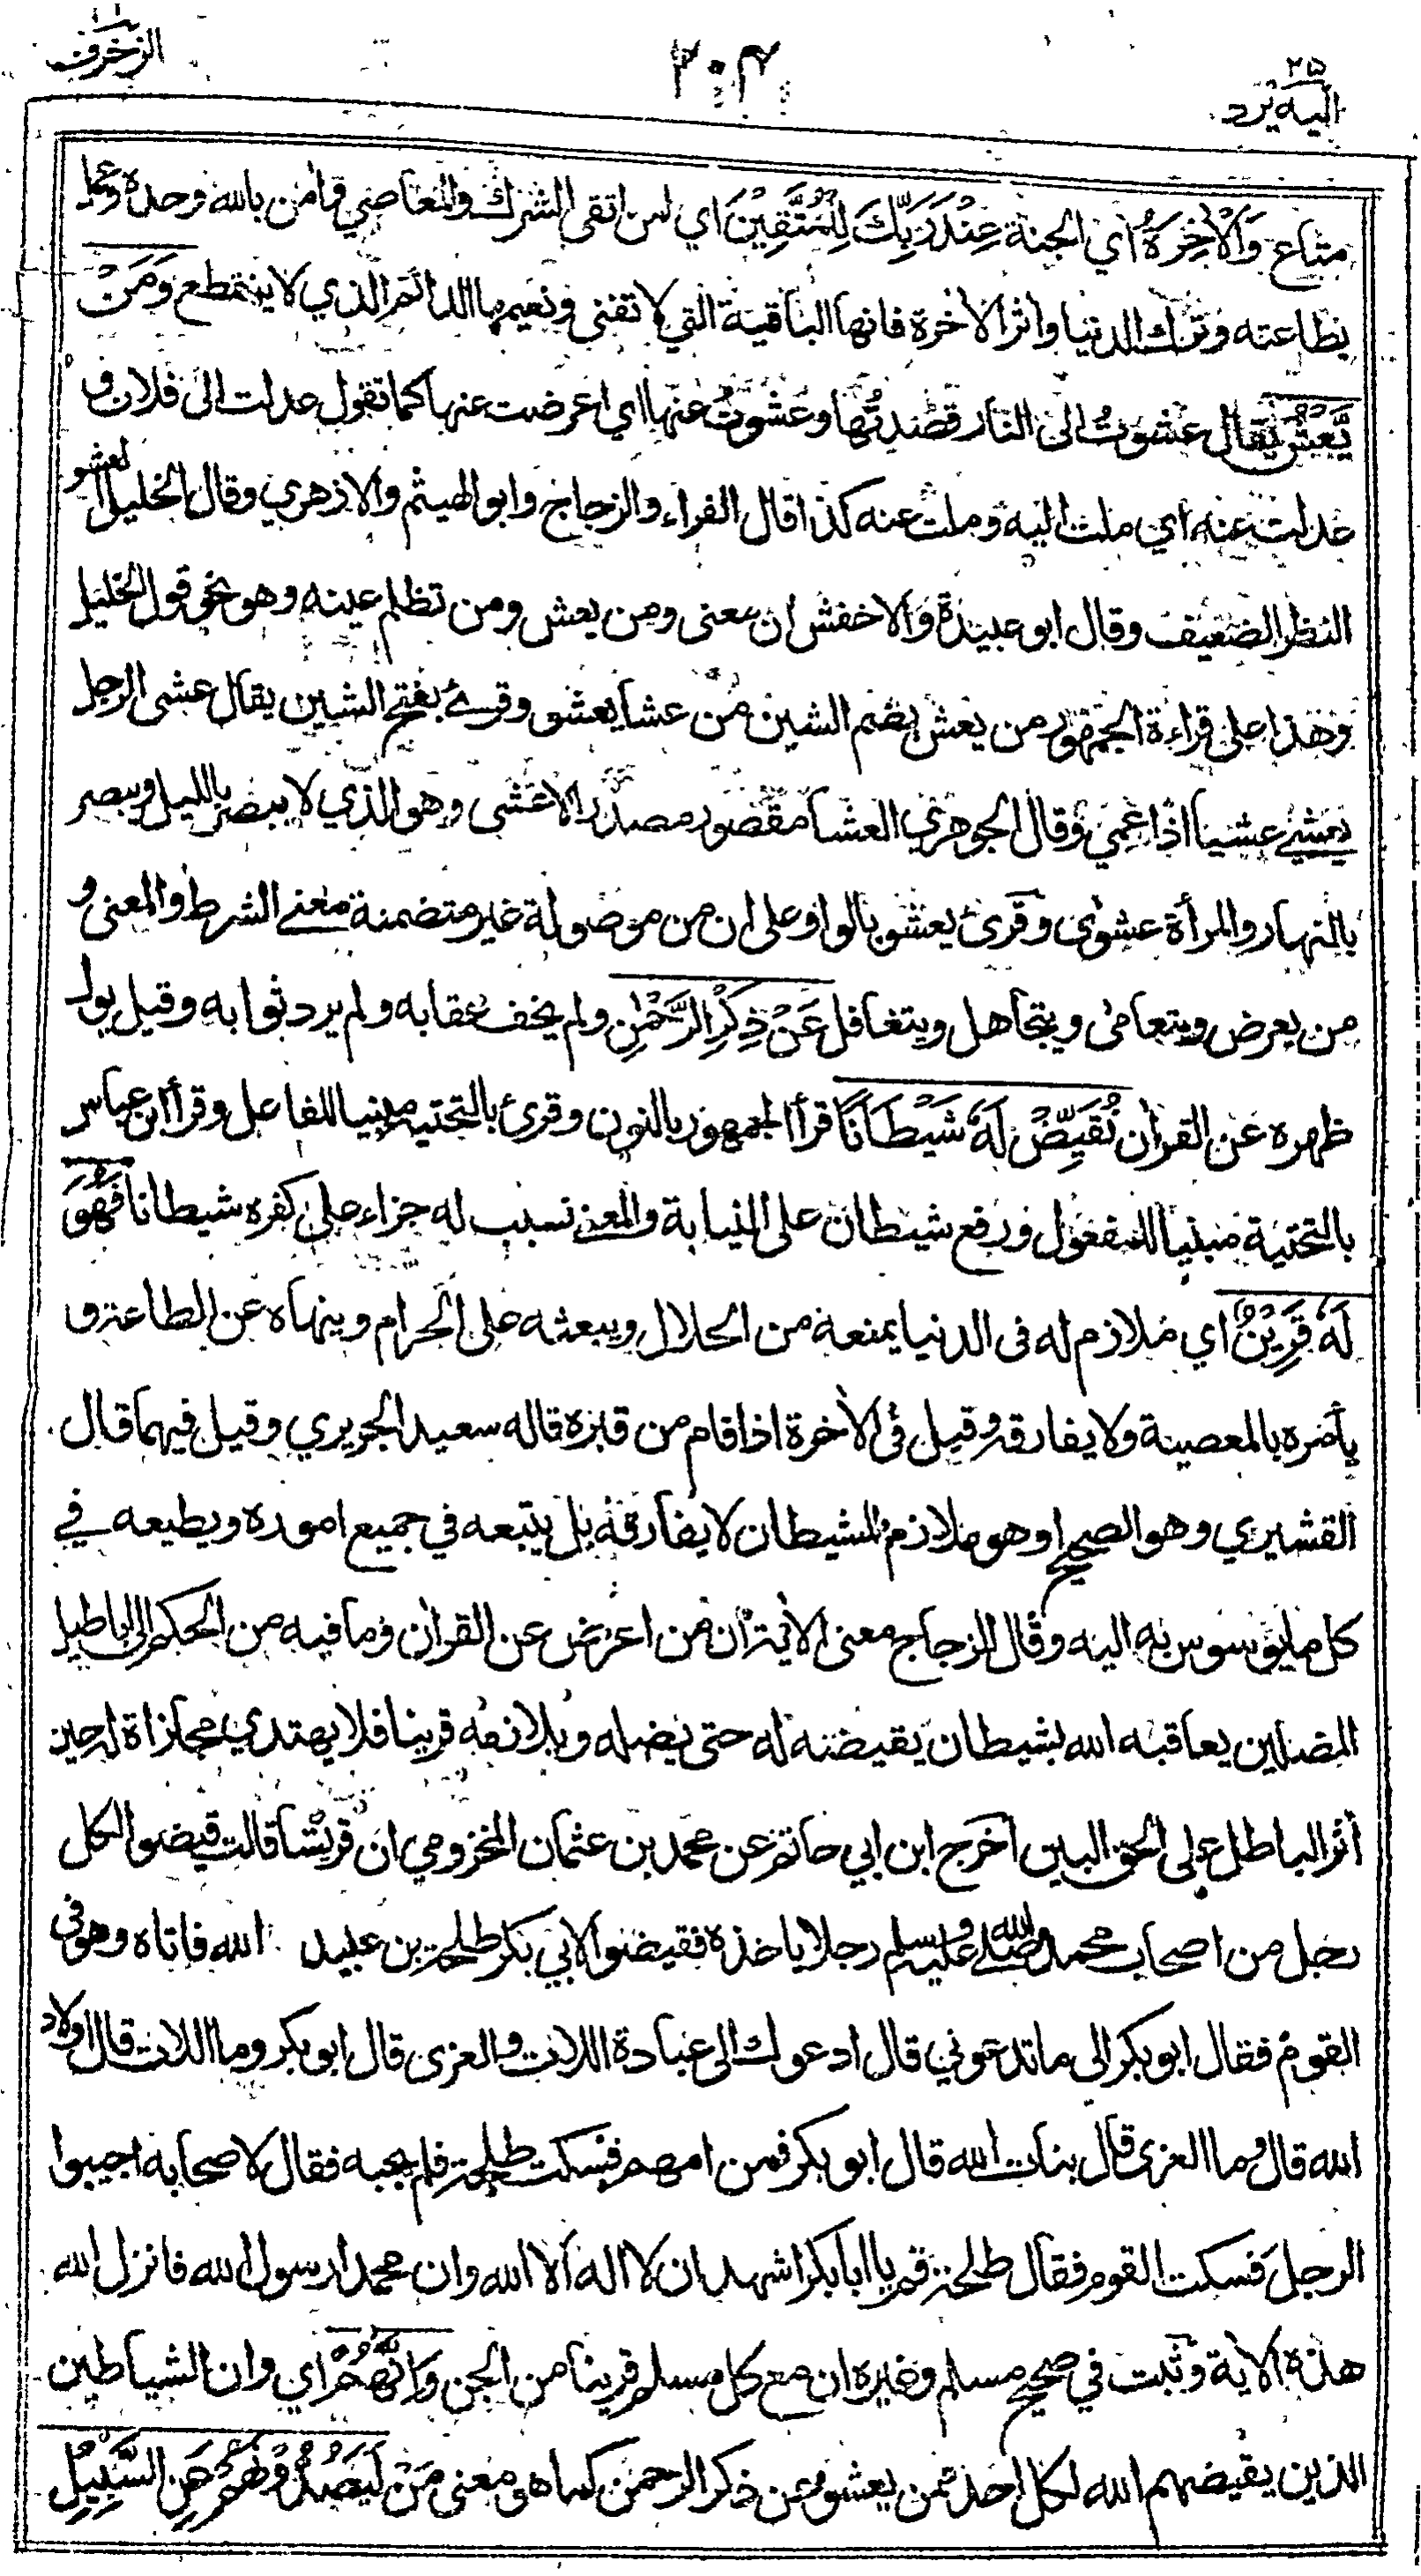 ٢٥
اليه يرد
٣٠٤
الزخرف
متاع وَالْاٰخِرَةُ اي الجنة عِنْدَ رَبِّكَ لِلْمُتَّقِيْنَ اي لمن اتقى الشرك والمعاصي وآمن بالله وحده وعمل
بطاعته وترك الدنيا واثر الاخرة فانها الباقية التي لا تفنى ونعيمها الدائم الذي لا ينقطع وَمَنْ
يَّعْشُ يقال عشوتُ الى النار قصدتُها وعشوتُ عنها اي اعرضت عنها كما تقول عدلت الى فلان و
عدلت عنه اي ملت اليه وملت عنه كذا قال الفراء والزجاج وابو الهيثم والازهري وقال الخليل العشو
النظر الضعيف وقال ابو عبيدة والاخفش ان معنى ومن يعش ومن تظلم عينه وهو نحو قول الخليل
وهذا على قراءة الجمهور من يعش بضم الشين من عشا يعشو وقرئ بفتح الشين يقال عشى الرجل
يعشي عشيا اذا عمي وقال الجوهري العشا مقصور مصدر الاعشى وهو الذي لا يبصر بالليل ويبصر
بالنهار والمرأة عشوى وقرئ يعشو بالواو على ان من موصولة غير متضمنة معنى الشرط والمعنى و
من يعرض ويتعامى ويتجاهل ويتغافل عَنْ ذِكْرِ الرَّحْمٰنِ ولم يخف عقابه ولم يرد ثوابه وقيل يول
ظهره عن القران نُقَيِّضْ لَهٗ شَيْطَانًا قرأ الجمهور بالنون وقرئ بالتحتية مبنيا للفاعل وقرأ ابن عباس
بالتحتية مبنيا للمفعول ورفع شيطان على النيابة والمعنى نسبب له جزاء على كفره شيطانا فَهُوَ
لَهٗ قَرِيْنٌ اي ملازم له فى الدنيا يمنعه من الحلال ويبعثه على الحرام وينهاه عن الطاعة و
يأمره بالمعصية ولا يفارقه وقيل فى الاخرة اذا قام من قبره قاله سعيد الجريري وقيل فيهما قال
القشيري وهو الصحيح او هو ملازم للشيطان لا يفارقه بل يتبعه في جميع اموره ويطيعه في
كل ما يوسوس به اليه وقال الزجاج معنى الاية ان من اعرض عن القران وما فيه من الحكم الى اباطيل
المضلين يعاقبه الله بشيطان يقيضه له حتى يضله ويلازمه قرينا فلا يهتدي مجازاة له حين
أثر الباطل على الحق البين اخرج ابن ابي حاتم عن محمد بن عثمان المخزومي ان قريشا قالت قيضوا لكل
رجل من اصحاب محمد صلى الله عليه وسلم رجلا ياخذه فقيضوا لابي بكر طلحة بن عبيد الله فاتاه وهو فى
القوم فقال ابو بكر الى ما تدعوني قال ادعوك الى عبادة اللات والعزى قال ابو بكر وما اللات قال اولاد
الله قال وما العزى قال بنات الله قال ابو بكر فمن امهم فسكت طلحة فلم يجبه فقال لاصحابه اجيبوا
الرجل فسكت القوم فقال طلحة قم يا ابا بكر اشهد ان لا اله الا الله وان محمدا رسول الله فانزل الله
هذه الاية وثبت في صحيح مسلم وغيره ان مع كل مسلم قرينا من الجن وَاِنَّهُمْ اي وان الشياطين
الذين يقيضهم الله لكل احد ممن يعشو عن ذكر الرحمن كما هو معنى مَنْ لَيَصُدُّوْنَهُمْ عَنِ السَّبِيْلِ